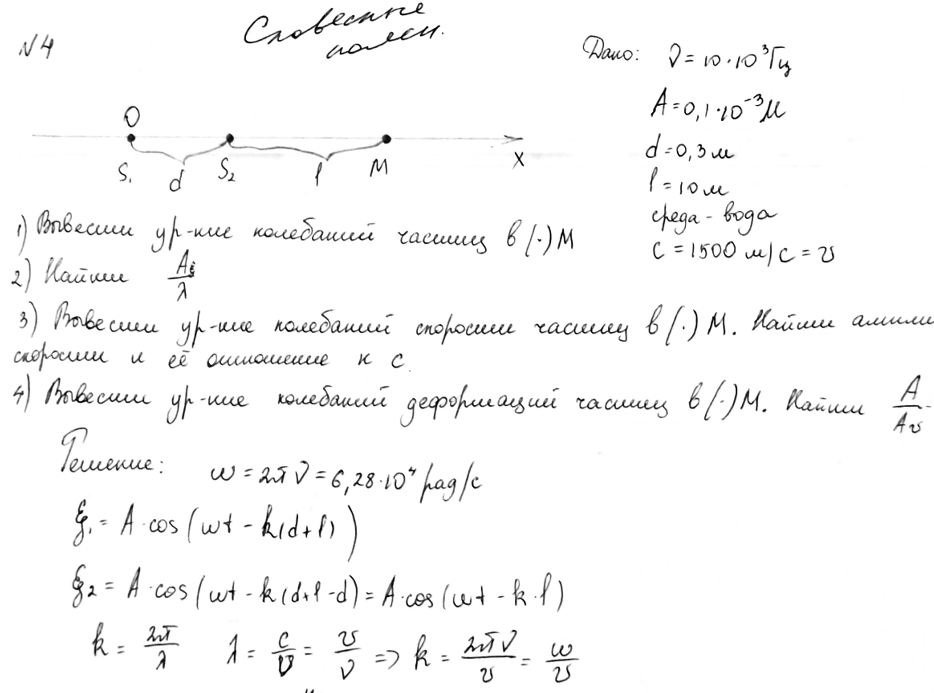 №4
Словесные
Дано: ν = 10·10³ Гц
A = 0,1·10⁻³ м
d = 0,3 м
l = 10 м
среда - вода
c = 1500 м/с = v
O
S₁ d S₂ l M x
1) Вывести ур-ние колебаний частиц в (·) M
2) Найти A/λ
3) Вывести ур-ние колебаний скорости частиц в (·) M. Найти ампли
скорости и её отношение к c.
4) Вывести ур-ние колебаний деформаций частиц в (·) M. Найти A/Av
Решение: ω = 2πν = 6,28·10⁴ рад/с
ξ₁ = A·cos(ωt - k(d+l))
ξ₂ = A·cos(ωt - k(d+l-d) = A·cos(ωt - k·l)
k = 2π/λ λ = c/ν = v/ν => k = 2πν/v = ω/v